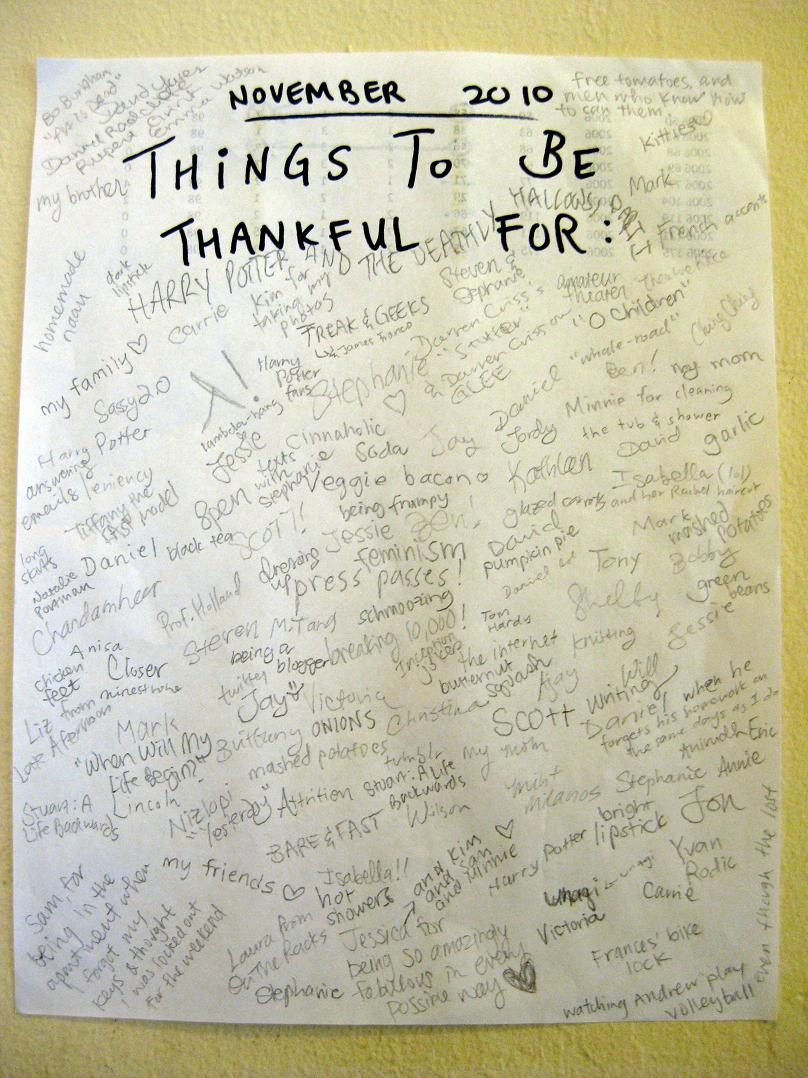 NOVEMBER 2010
THINGS TO BE
THANKFUL FOR:
Bo Burnham
"Art Is Dead"
Daniel Radcliffe
Rupert Grint
Emma Watson
free tomatoes, and
men who know how
to say them
kitties
my brother
Mark
French accents
HARRY POTTER AND THE DEATHLY HALLOWS
dark
lipstick
homemade
naan
Carrie
Kim for
taking my
photos
Steven &
Stephanie
FREAK & GEEKS
& James Franco
Darren Criss's amateur
theater
"Stutter"
& Darren Criss on
GLEE
"O Children"
my family
Sassy2.0
Harry
Potter
fans
Stephanie
Daniel
"whale-road"
Ben!
Ching Ching
my mom
Harry
Potter
answering
emails
leniency
Jessie
Cinnaholic
Jay
Jordy
Minnie for cleaning
the tub & shower
David
garlic
texts
with
Stephanie
Soda
Veggie bacon
Kathleen
Isabella (lol)
and her Rachel haircut
Tiffany the
8pm
being frumpy
glazed carrots
long
skirts
Natalie
Portman
Daniel
black tea
SCOTT!
Jessie
Ben!
David
pumpkin pie
Mark
mashed
potatoes
dressing
up
feminism
press passes!
Tony
Bobby
Prof. Holland
green
beans
Steven
M. Tang
schmoozing
Tom
Hardy
Shelby
Anisa
chicken
feet
Closer
being a
twitter blogger
breaking 10,000!
Inception
jokes
the internet
butternut
squash
knitting
Jessie
Liz
from
Late Afternoon
Jay
Victoria
Christina
Jay
Will
writing
Mark
"When Will My
Life Begin?"
Brittany
ONIONS
SCOTT
Daniel when he
forgets his homework on
the same days as I do
mashed potatoes
tumblr
my mom
Anirudh
Eric
Stuart: A
Life Backwards
Lincoln
Nizlopi
"Yesterday"
Attrition
Stuart: A Life
Backwards
Wilson
mint
milanos
Stephanie
Annie
BARE & FAST
bright
lipstick
Jon
my friends
Isabella!!
hot
showers
Ann, Kim
and Sam
and Minnie
Harry Potter
Yvan
Rodic
unagi
Carrie
Sam, for
being in the
apartment when
I forgot my
keys & thought
I was locked out
for the weekend
Laura from
On The Racks
Jessica for
being so amazingly
fabulous in every
possible way
Stephanie
Victoria
Frances' bike
lock
watching Andrew play
volleyball
even though he lost